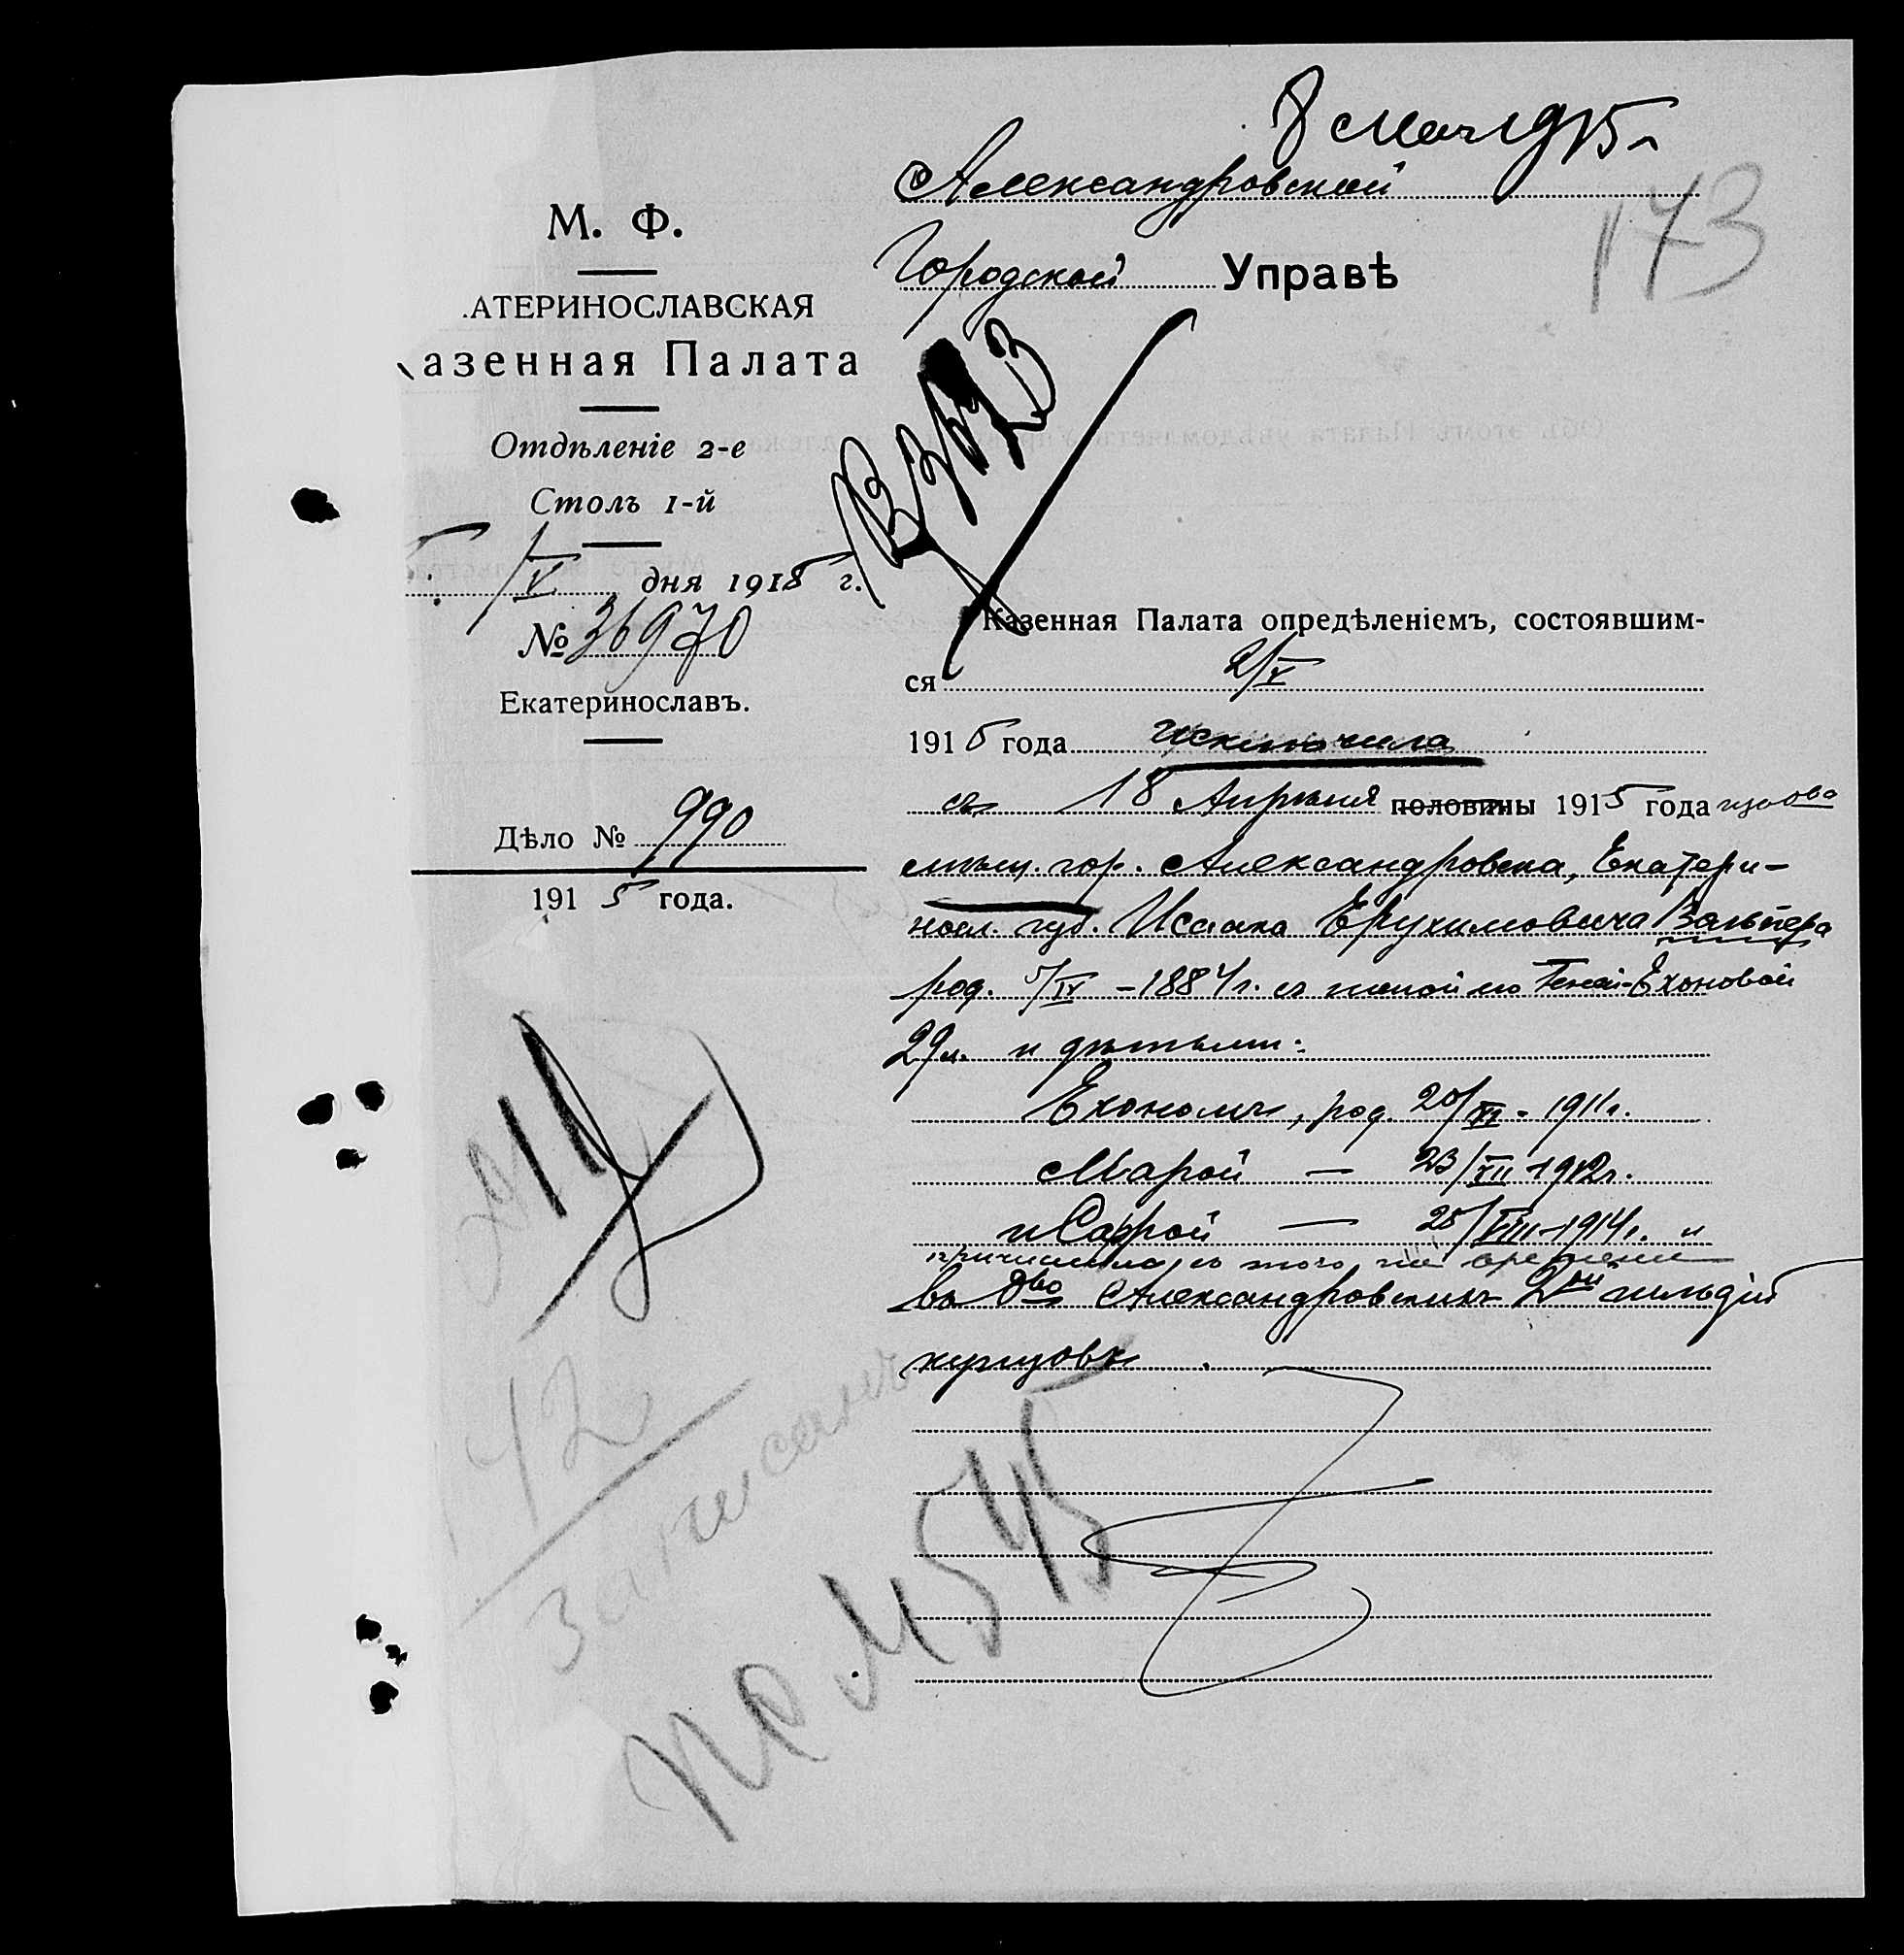 8 Мая 1915 г
173
М. Ф.
.АТЕРИНОСЛАВСКАЯ
азенная Палата
Отдѣленіе 2-е
Столъ 1-й
5/V дня 1915 г.
№ 36970
Екатеринославъ.
Дѣло № 990
1915 года.
Александровской
Городской Управѣ
Казенная Палата опредѣленіемъ, состоявшим-
ся 2/V
1915 года исключила
съ 18 Апрѣля половины 1915 года изъ о-ва
мѣщ. гор. Александровска, Екатери-
носл. губ. Исаака Ерухимовича Вальтера
род. 5/IV - 1884 г. съ женой его Геней-Ехоновой
29 л. и дѣтьми:
Ехономъ, род. 20/XI - 1911 г.
Марой — 23/XII 1912 г.
и Саррой — 25/VIII - 1914 г. и
причислила съ того же времени
въ о-во Александровскихъ 2ой гильдіи
купцовъ.
42
Записанъ
№ 4545